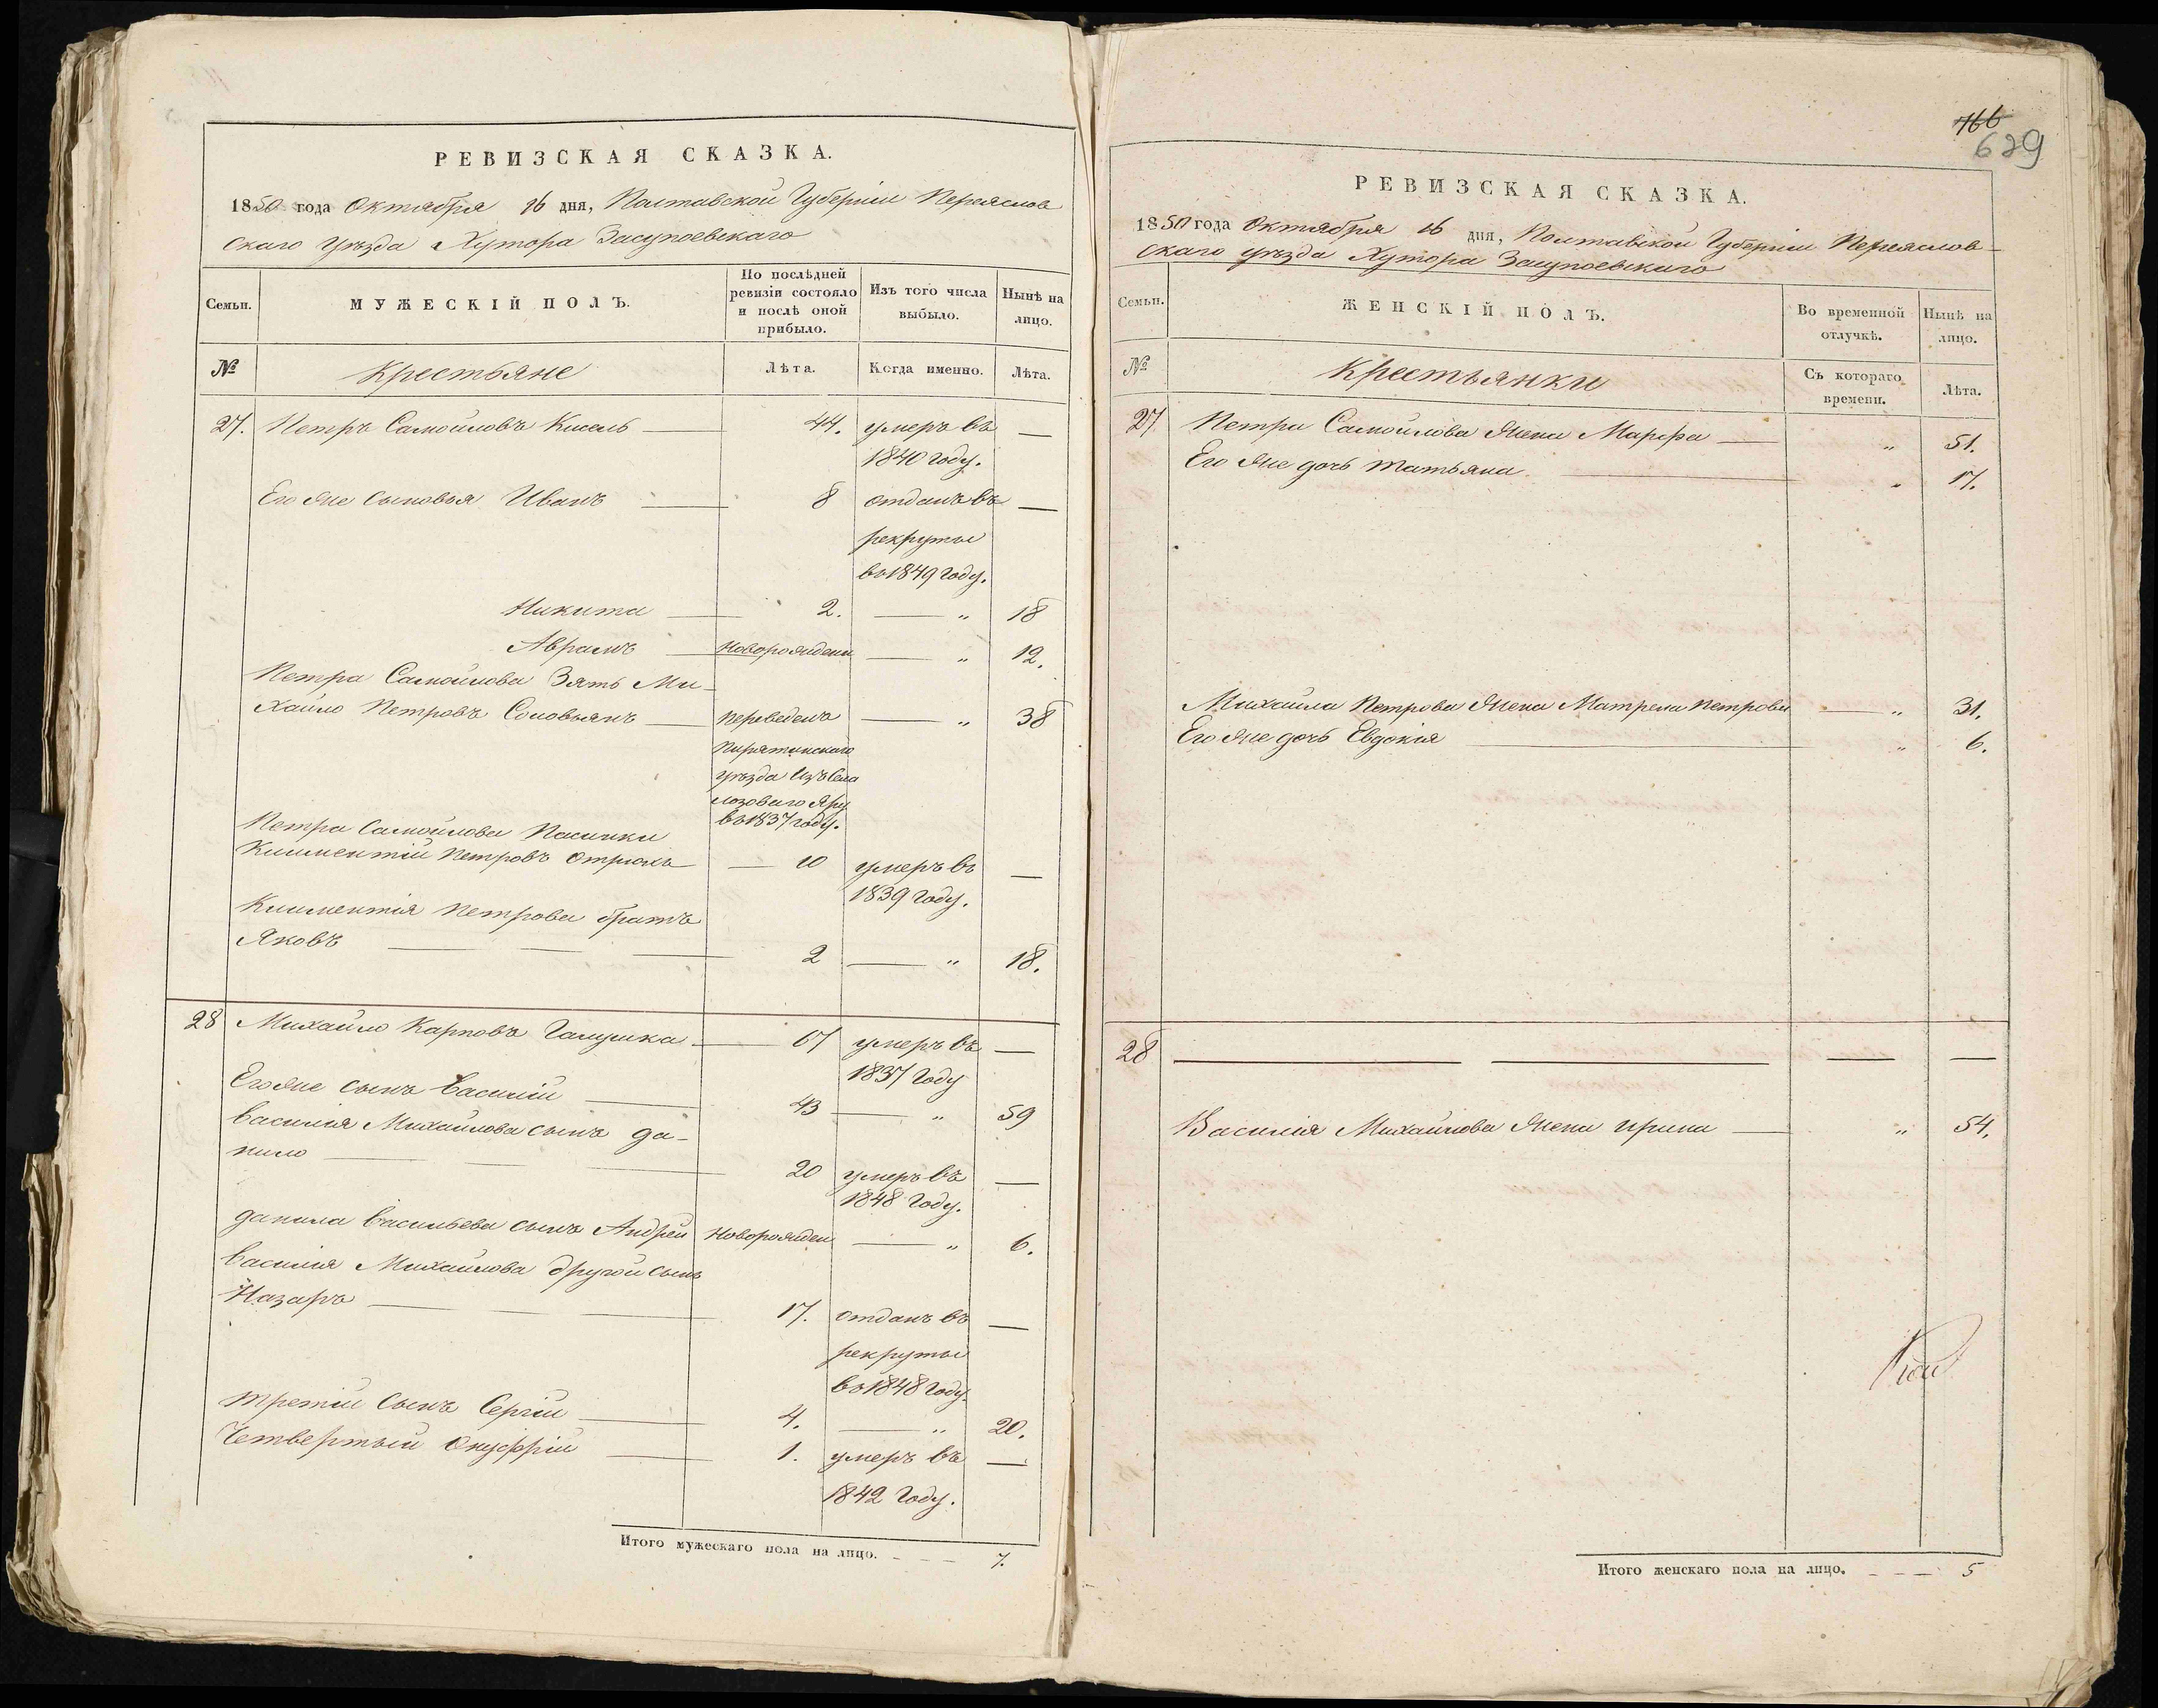 РЕВИЗСКАЯ СКАЗКА.
1850 года Октября 16 дня, Полтавской Губерніи Переяслов
скаго уѣзда Хутора Засупоевскаго
Семьи. МУЖЕСКІЙ ПОЛЪ. По послѣдней ревизіи состояло и послѣ оной прибыло. Изъ того числа выбыло. Нынѣ на лицо.
№ Крестьяне Лѣта. Когда именно. Лѣта.
27. Петръ Самойловъ Кисель — 44. умеръ въ —
1840 году.
Его же сыновья Иванъ — 8 отданъ въ —
рекруты
въ 1849 году.
Никита — 2. — „ 18
Аврамъ — новорожденн — „ 12.
Петра Самойлова Зять Ми-
хайло Петровъ Соловьянъ — переведенъ — „ 38
Пирятинскаго
уѣзда Изъ Села
Лозоваго Яру
въ 1837 году.
Петра Самойлова Пасинки
Климентій Петровъ — 10 умеръ въ —
1839 году.
Климентія Петрова братъ
Яковъ — — — 2 — „ 18.
28 Михайло Карповъ Галушка — 67 умеръ въ —
1837 году
Его же сынъ Василій — 43 — „ 59
Василія Михайлова сынъ Да-
нило — — — 20 умеръ въ —
1848 году.
Данила Васильева сынъ Андрей новорожден — „ 6.
Василія Михайлова другой сынъ
Назаръ — — — 17. отданъ въ —
рекруты
въ 1848 году.
третій сынъ Сергій — 4. — „ 20.
Четвертый Онуфрій — 1. умеръ въ —
1842 году.
Итого мужескаго пола на лицо. - - - 7.
166
629
РЕВИЗСКАЯ СКАЗКА.
1850 года Октября 16 дня, Полтавской Губерніи Переяслов-
скаго уѣзда Хутора Засупоевскаго
Семьи. ЖЕНСКІЙ ПОЛЪ. Во временной отлучкѣ. Нынѣ на лицо.
№ Крестьянки Съ котораго времени. Лѣта.
27 Петра Самойлова жена Марфа — „ 51.
Его же дочь Татьяна — „ 17.
Михайла Петрова жена Матрена Петрова — „ 31.
Его же дочь Евдокія — „ 6.
28 — — — —
Василія Михайлова жена Ирина — „ 54.
Итого женскаго пола на лицо. - - - 5